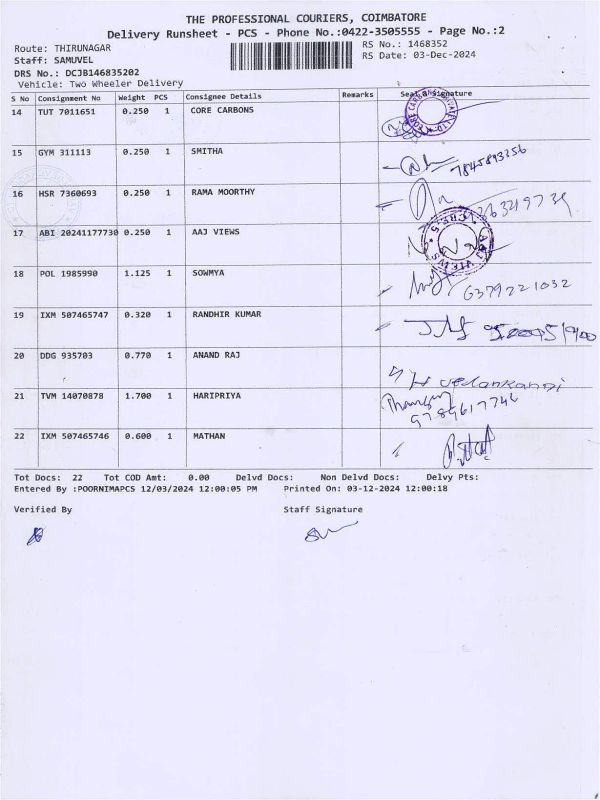 THE PROFESSIONAL COURIERS, COIMBATORE
Delivery Runsheet - PCS - Phone No.:0422-3505555 - Page No.:2
Route: THIRUNAGAR RS No.: 1468352
Staff: SAMUVEL RS Date: 03-Dec-2024
DRS No.: DCJB146835202
Vehicle: Two Wheeler Delivery
S No Consignment No Weight PCS Consignee Details Remarks Seal & Signature
14 TUT 7011651 0.250 1 CORE CARBONS
15 GYM 311113 0.250 1 SMITHA 7845893256
16 HSR 7360693 0.250 1 RAMA MOORTHY
17 ABI 20241177730 0.250 1 AAJ VIEWS
AAJ VIEWS
18 POL 1985990 1.125 1 SOWMYA 6379221032
19 IXM 507465747 0.320 1 RANDHIR KUMAR
20 DDG 935703 0.770 1 ANAND RAJ
21 TVM 14070878 1.700 1 HARIPRIYA 9789617746
22 IXM 507465746 0.600 1 MATHAN
Tot Docs: 22 Tot COD Amt: 0.00 Delvd Docs: Non Delvd Docs: Delvy Pts:
Entered By :POORNIMAPCS 12/03/2024 12:00:05 PM Printed On: 03-12-2024 12:00:18
Verified By Staff Signature